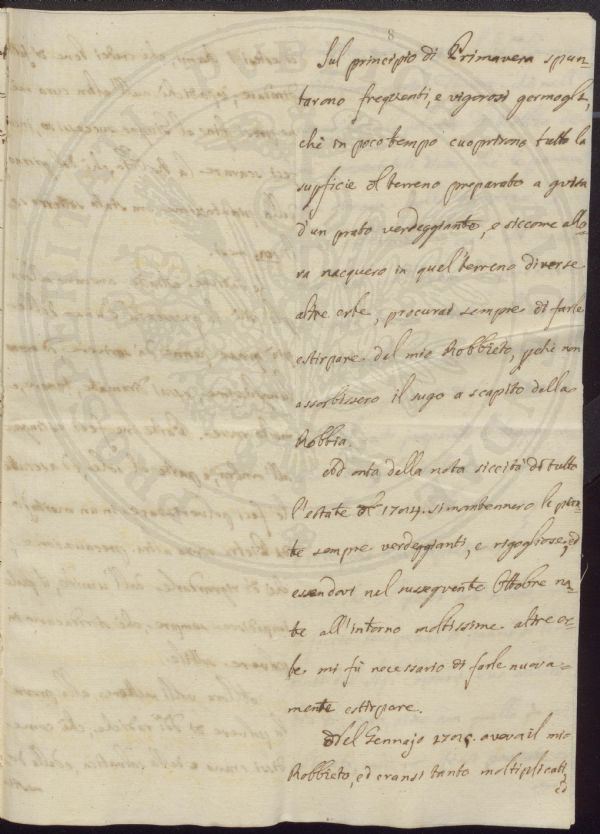 8
Sul principio di Primavera spun-
tarono frequenti, e vigorosi germogli,
che in poco tempo cuoprirono tutto la
supficie del terreno preparato a guisa
d'un prato verdeggiante, e siccome allo-
ra nacquero in quel terreno diverse
altre erbe, procurai sempre di farle
estirpare dal mio Robbieto, pchè non
assorbissero il sugo a scapito della
Robbia.
Ad onta della nota siccità di tutto
l'estate del si mantennero le pian-
te sempre verdeggianti, e rigogliose, ed
essendovi nel susseguente Ottobre na-
te all'intorno moltissime altre er-
be mi fù necessario di farle nuova-
mente estirpare.
Nel Gennajo aveva il mio
Robbieto, ed eransi tanto moltiplicati,
ed